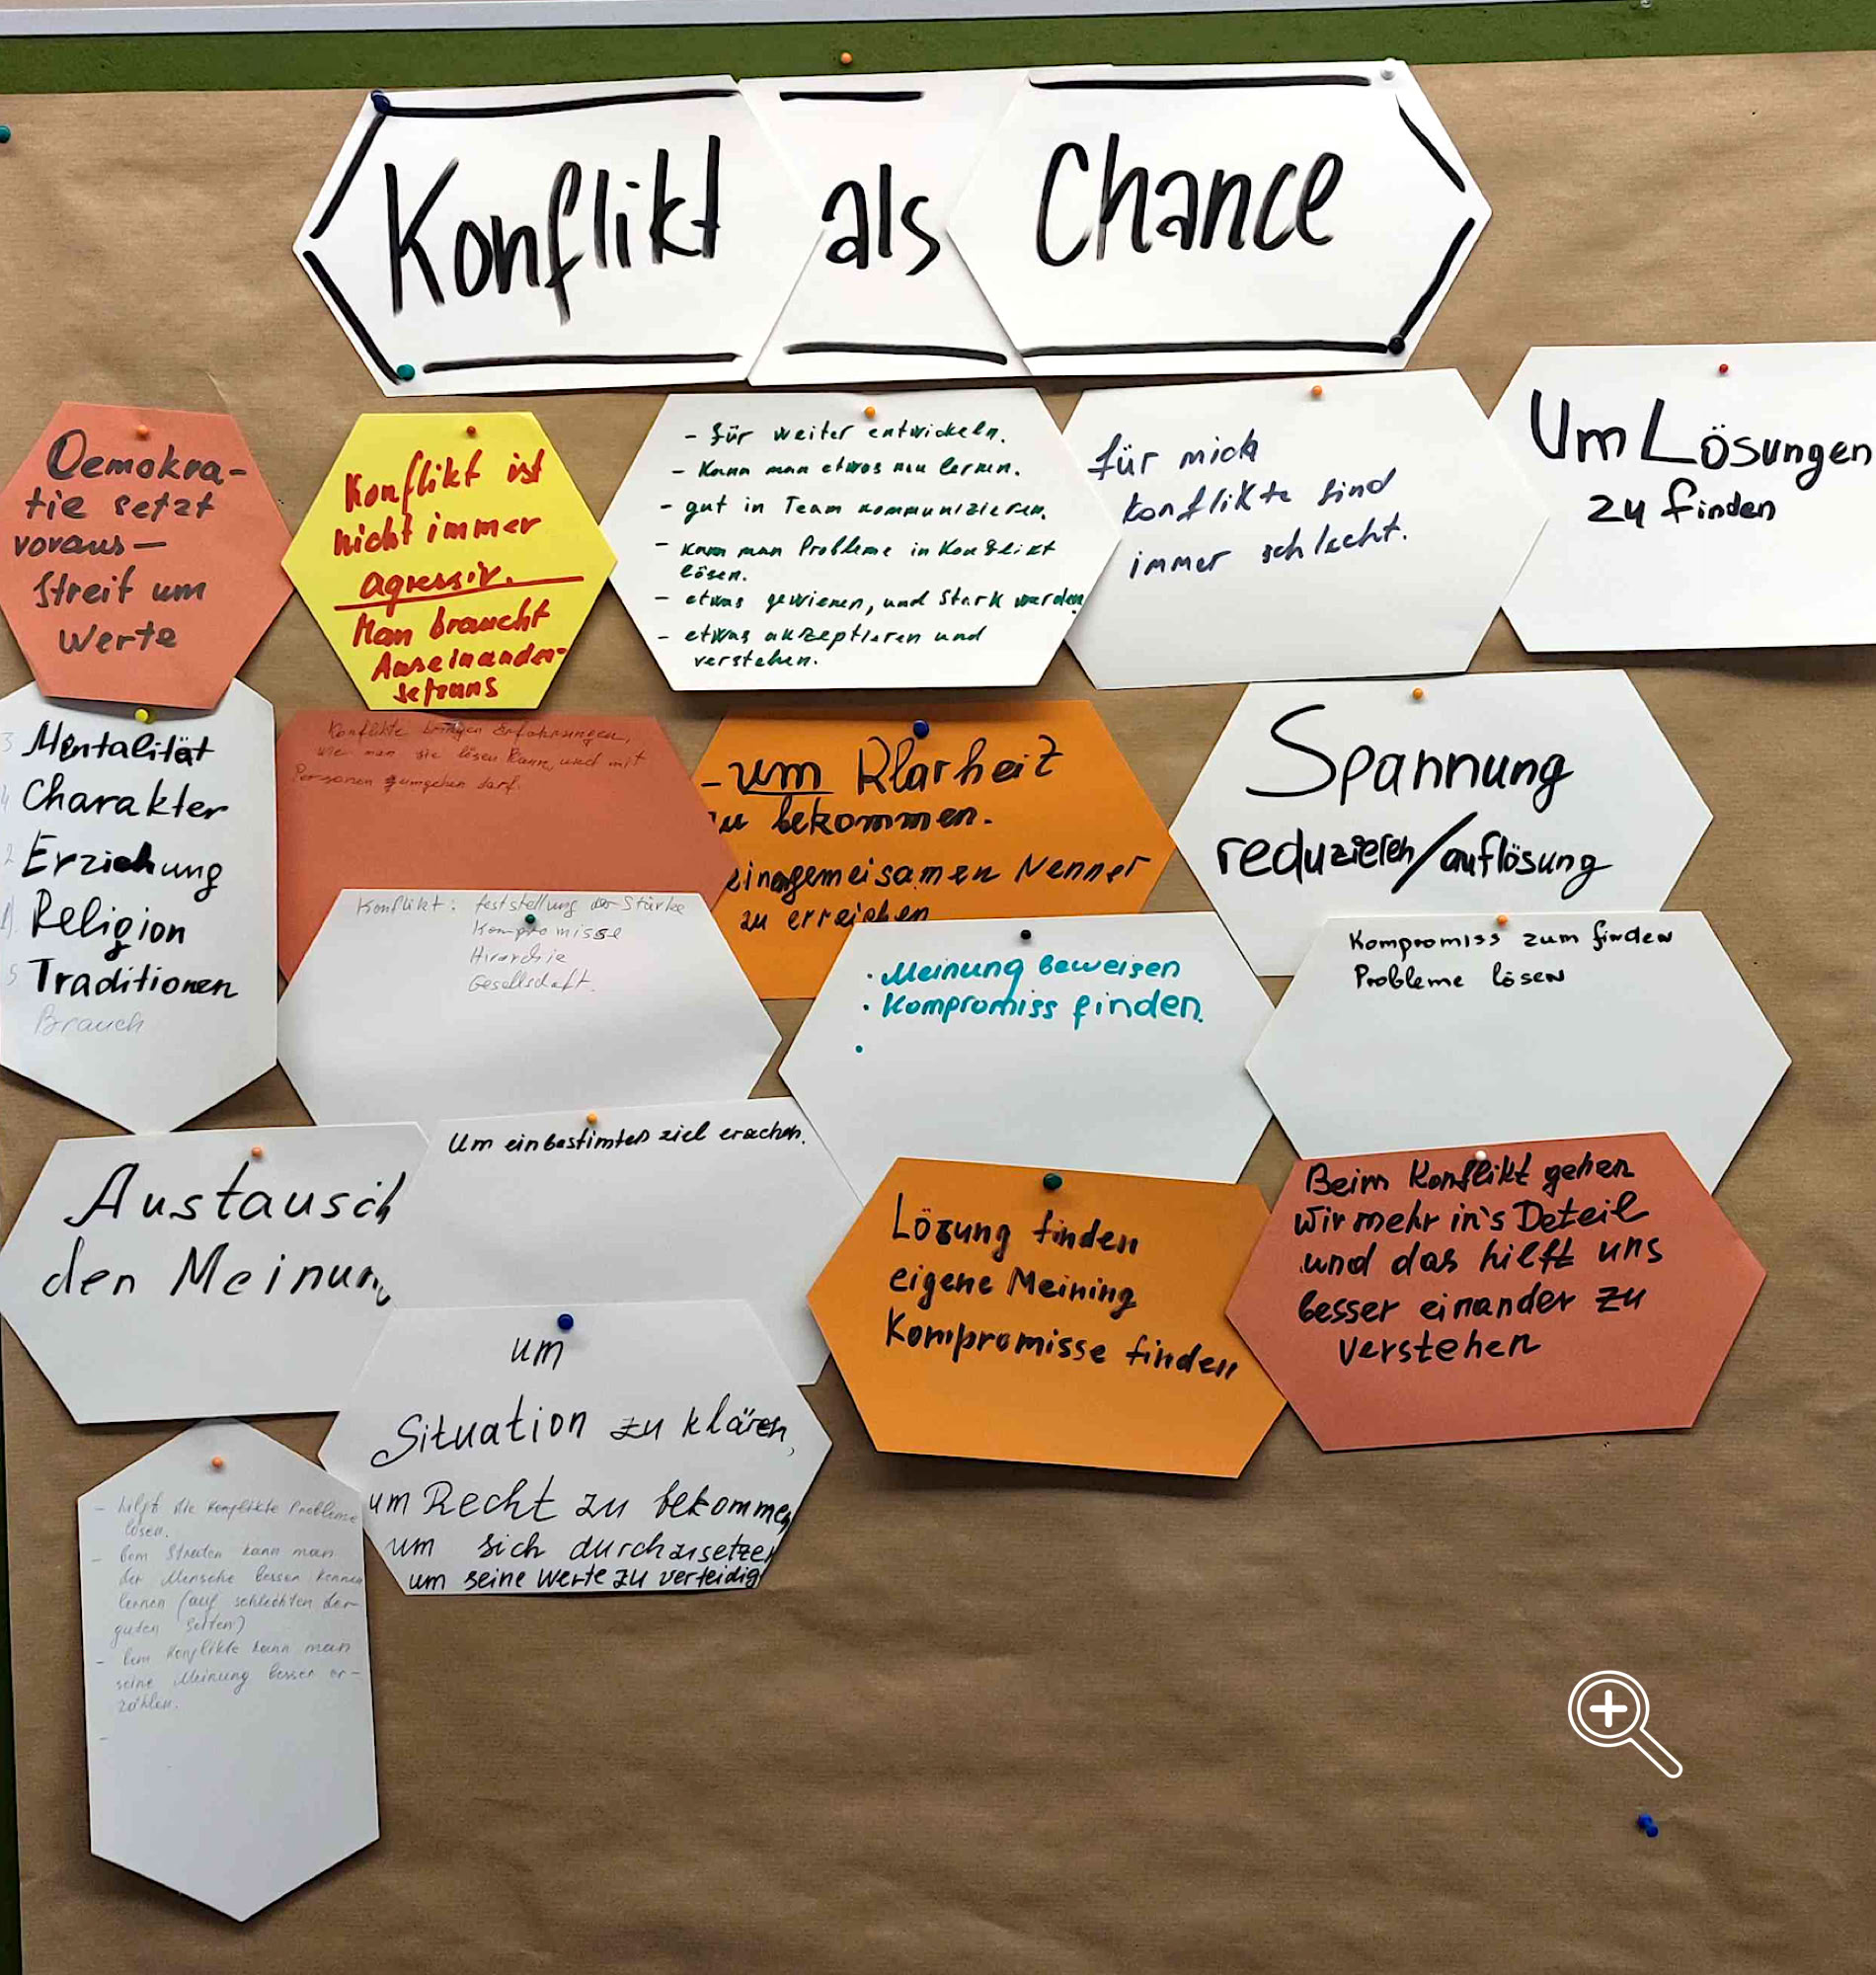 Konflikt als Chance
Demokra-
tie setzt
voraus —
Streit um
Werte
Konflikt ist
nicht immer
agressiv.
Man braucht
Auseinander-
setzuns
- für weiter entwickeln.
- Kann man etwas neu lernen.
- gut in Team kommunizieren.
- kann man Probleme in Konflikt
lösen.
- etwas gewienen, und Stark werden
- etwas akzeptieren und
verstehen.
für mich
konflikte sind
immer schlecht.
Um Lösungen
zu finden
3 Mentalität
4 Charakter
2 Erziehung
1). Religion
5 Traditionen
Brauch
Konflikte bringen Erfahrungen,
wie man sie lösen kann, und mit
Personen umgehen darf.
- um Klarheit
zu bekommen.
einen gemeisamen Nenner
zu erreichen
Spannung
reduzieren/auflösung
Konflikt: feststellung der Stärke
Kompromisse
Hirarchie
Gesellschaft.
· Meinung beweisen
· Kompromiss finden.
·
Kompromiss zum finden
Probleme lösen
Austausch
den Meinung
Um ein bestimten ziel erachen.
um
Situation zu klären,
um Recht zu bekommen
um sich durchzusetzen
um seine Werte zu verteidig
Lösung finden
eigene Meining
Kompromisse finden
Beim Konflikt gehen
wir mehr in's Deteil
und das hilft uns
besser einander zu
verstehen
- hilft die Konflikte Probleme
lösen.
- bem Streiten kann man
der Mensche besser kennen
lernen (auf schlechten der
guten Seiten)
- bem Konflikte kann man
seine Meinung besser er-
zählen.
-